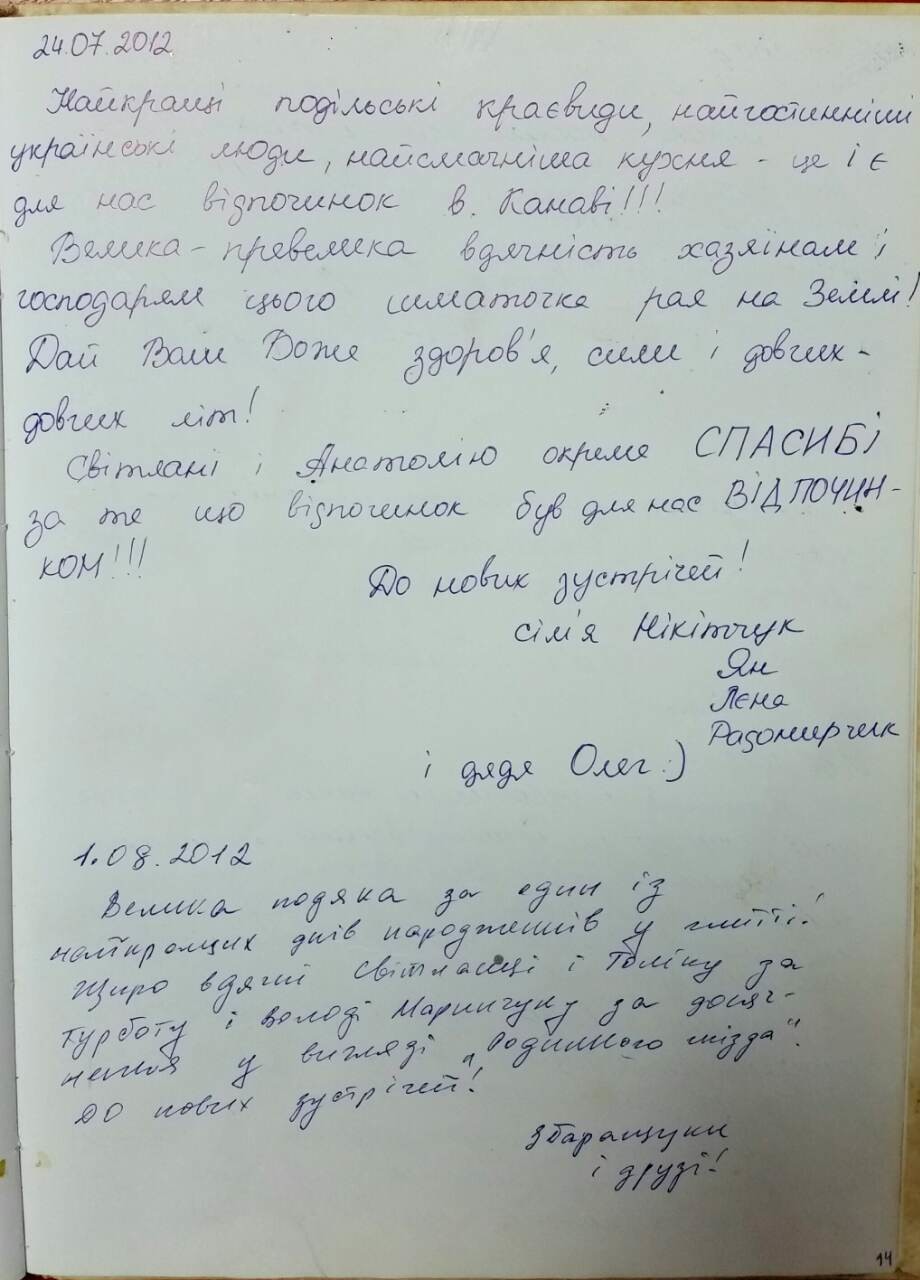 24.07.2012
Найкращі подільські краєвиди, найгостинніші
українські люди, найсмачніша кухня - це і є
для нас відпочинок в. Канаві!!!
Велика-превелика вдячність хазяїнам і
господарям цього шматочка рая на Землі!
Дай Вам Боже здоров'я, сили і довгих-
довгих літ!
Світлані і Анатолію окреме СПАСИБІ
за те що відпочинок був для нас ВІДПОЧИН-
КОМ!!!
До нових зустрічей!
сім'я Нікітчук
Ян
Лєна
Радомирчик
і дядя Олег :)
1.08.2012
Велика подяка за один із
найкращих днів народженнів у житті!
Щиро вдячні Світланці і Толіку за
турботу і Володі Маринчуку за досяг-
нення у вигляді "Родинного гнізда".
До нових зустрічей!
Збаращуки
і друзі!
14